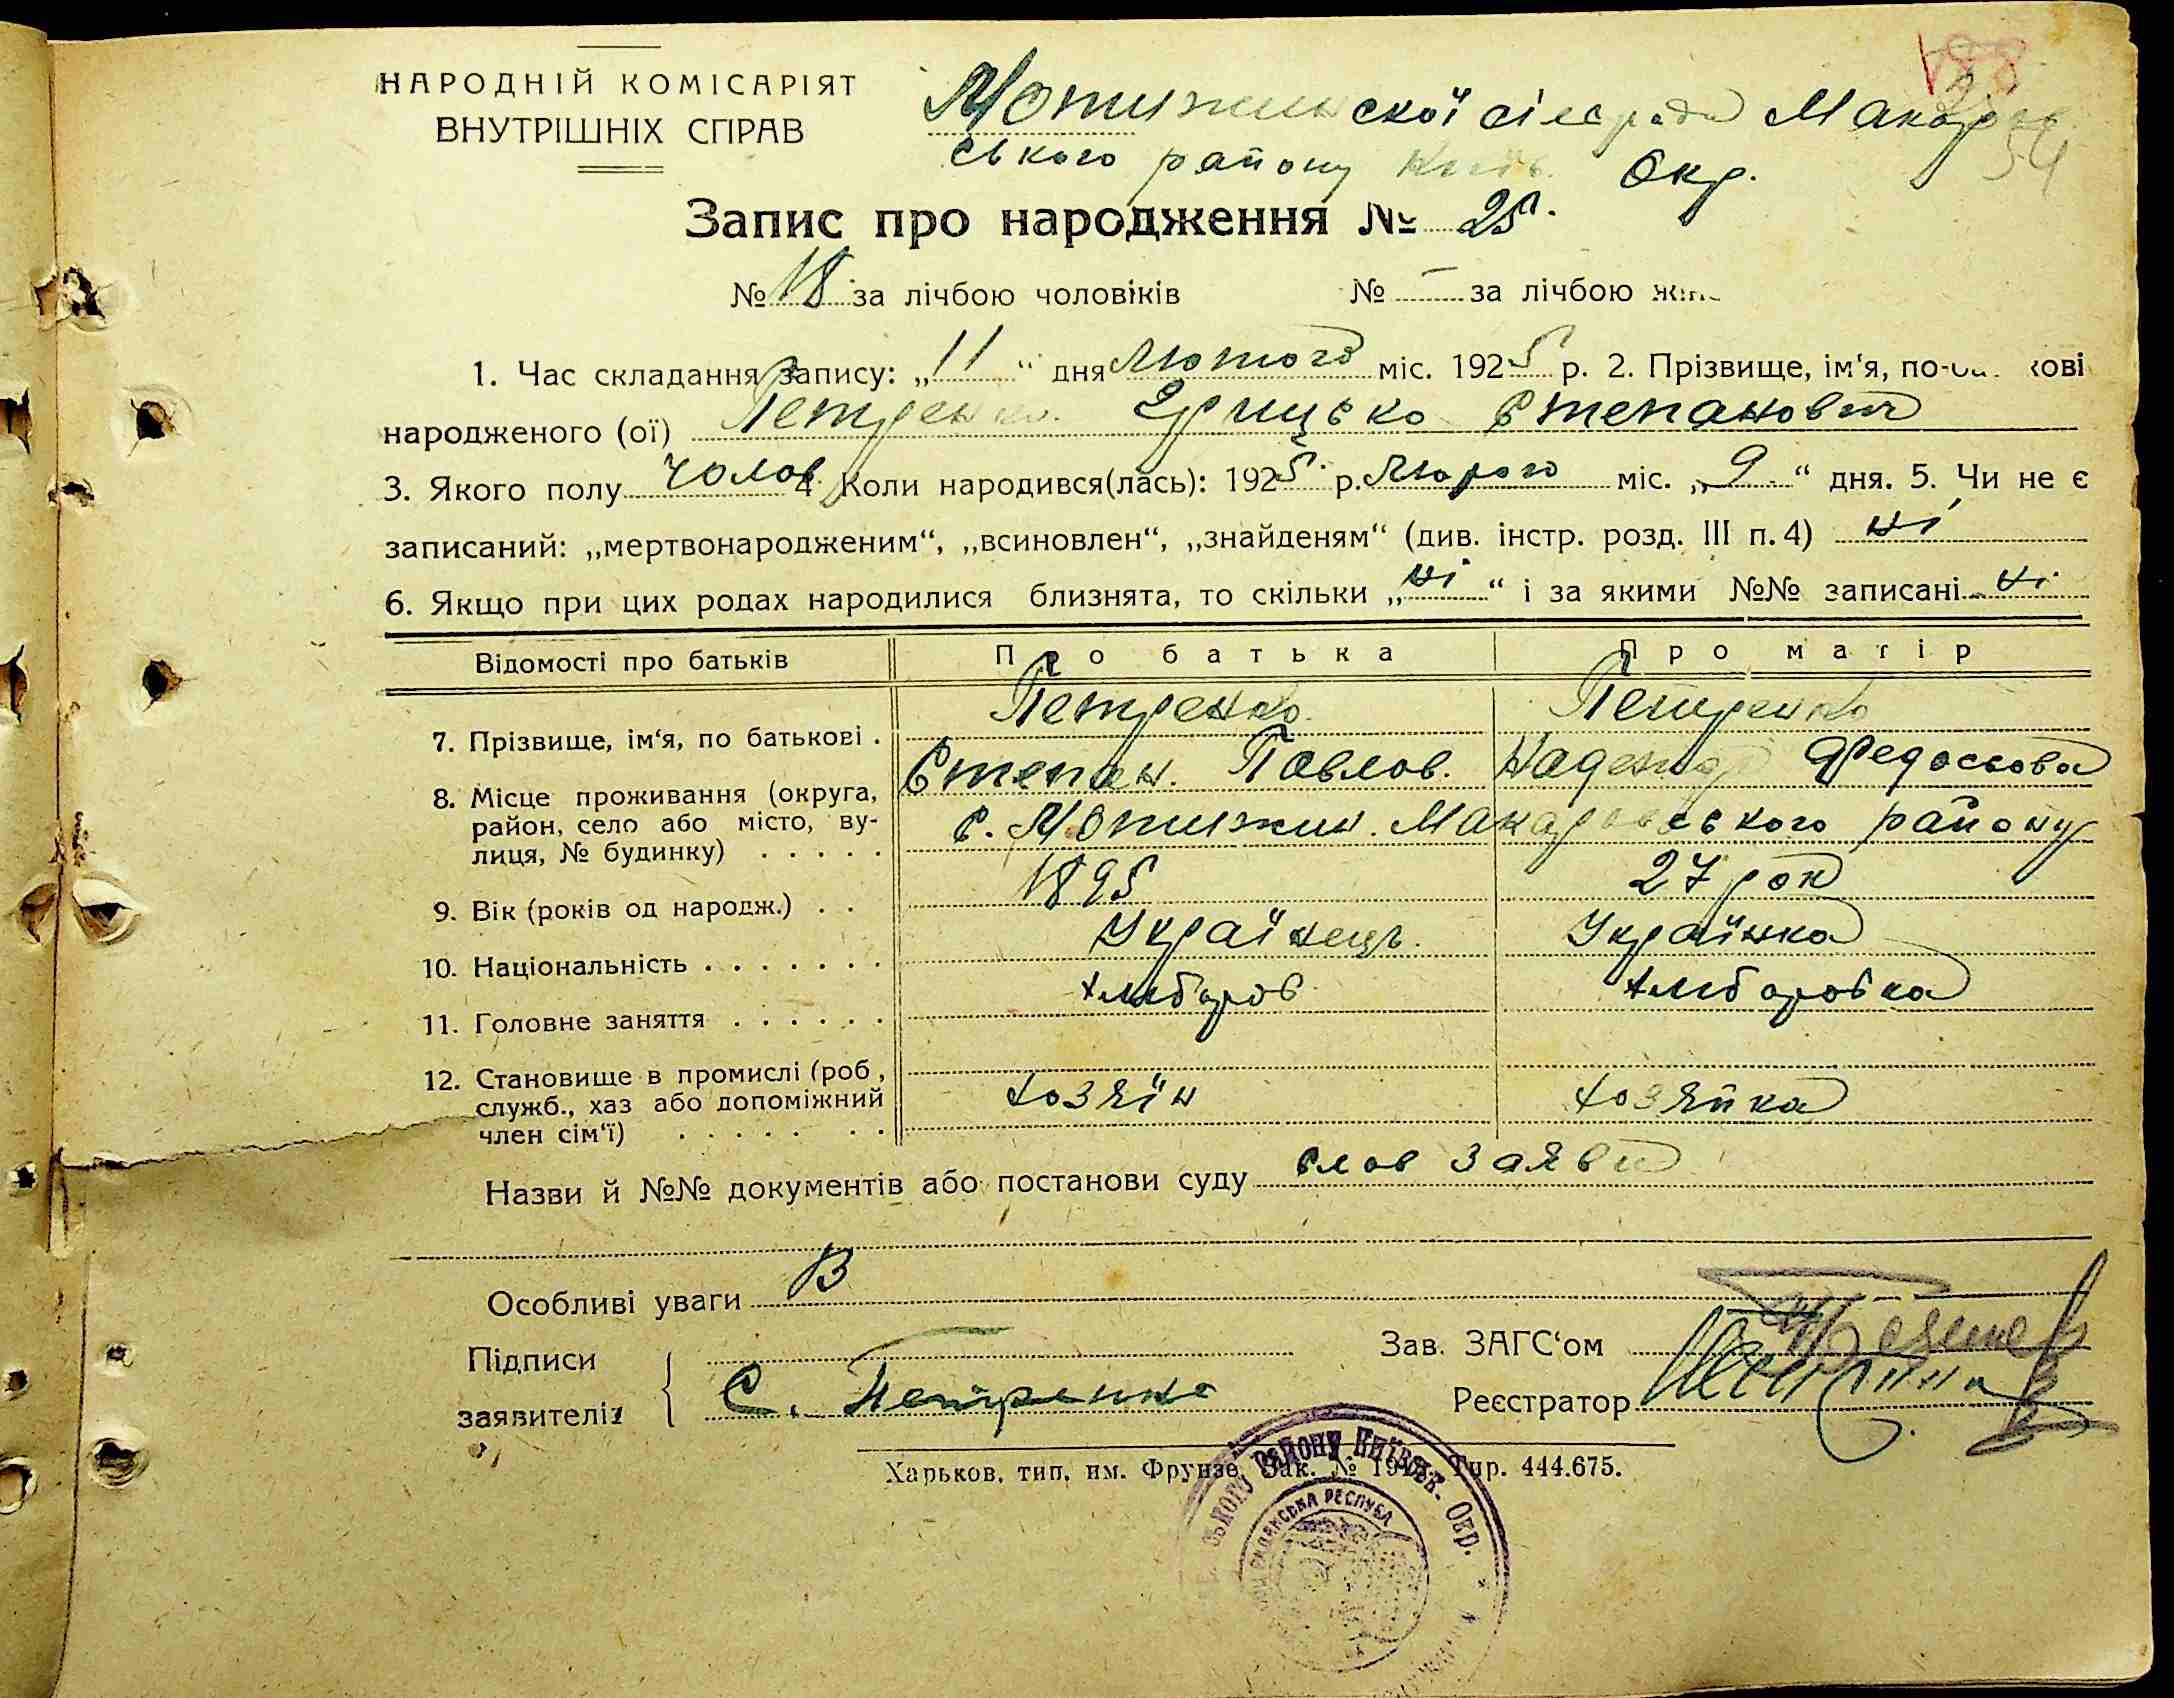 НАРОДНІЙ КОМІСАРІЯТ
ВНУТРІШНІХ СПРАВ
Мотижинської сільради Макарів
ського району Київ. Окр.
54
Запис про народження № 25.
№ 18 за лічбою чоловіків № — за лічбою жін
1. Час складання запису: „11“ дня Лютого міс. 1925 р. 2. Прізвище, ім‘я, по-ба кові
народженого (ої) Петренко Грицько Степанович
3. Якого полу чолов. 4 Коли народився(лась): 1925 р. Лютого міс. „9“ дня. 5. Чи не є
записаний: „мертвонародженим“, „всиновлен“, „знайденям“ (див. інстр. розд. III п. 4) ні
6. Якщо при цих родах народилися близнята, то скільки „ні“ і за якими №№ записані ні
Відомості про батьків Про батька Про матір
7. Прізвище, ім‘я, по батькові . Петренко Степан. Павлов. Петренко Надежда Федосьова
8. Місце проживання (округа,
район, село або місто, ву-
лиця, № будинку) . . . . . с. Мотижин. Макаровського району
9. Вік (років од народж.) . . 1895 27 рок
10. Національність . . . . . . . Українець. Українка
11. Головне заняття . . . . . . хлібороб хлиборобка
12. Становище в промислі (роб,
служб., хаз або допоміжний
член сім‘ї) . . . . . . . хозяїн хозяйка
Назви й №№ документів або постанови суду слов заяви
Особливі уваги
Підписи
заявителів С. Петренко
Зав. ЗАГС‘ом
Реєстратор
Харьков, тип. им. Фрунзе. Зак. № Тир. 444.675.
ського РАЙОНУ Київськ. Окр.
РАДЯНСЬКА РЕСПУБЛ